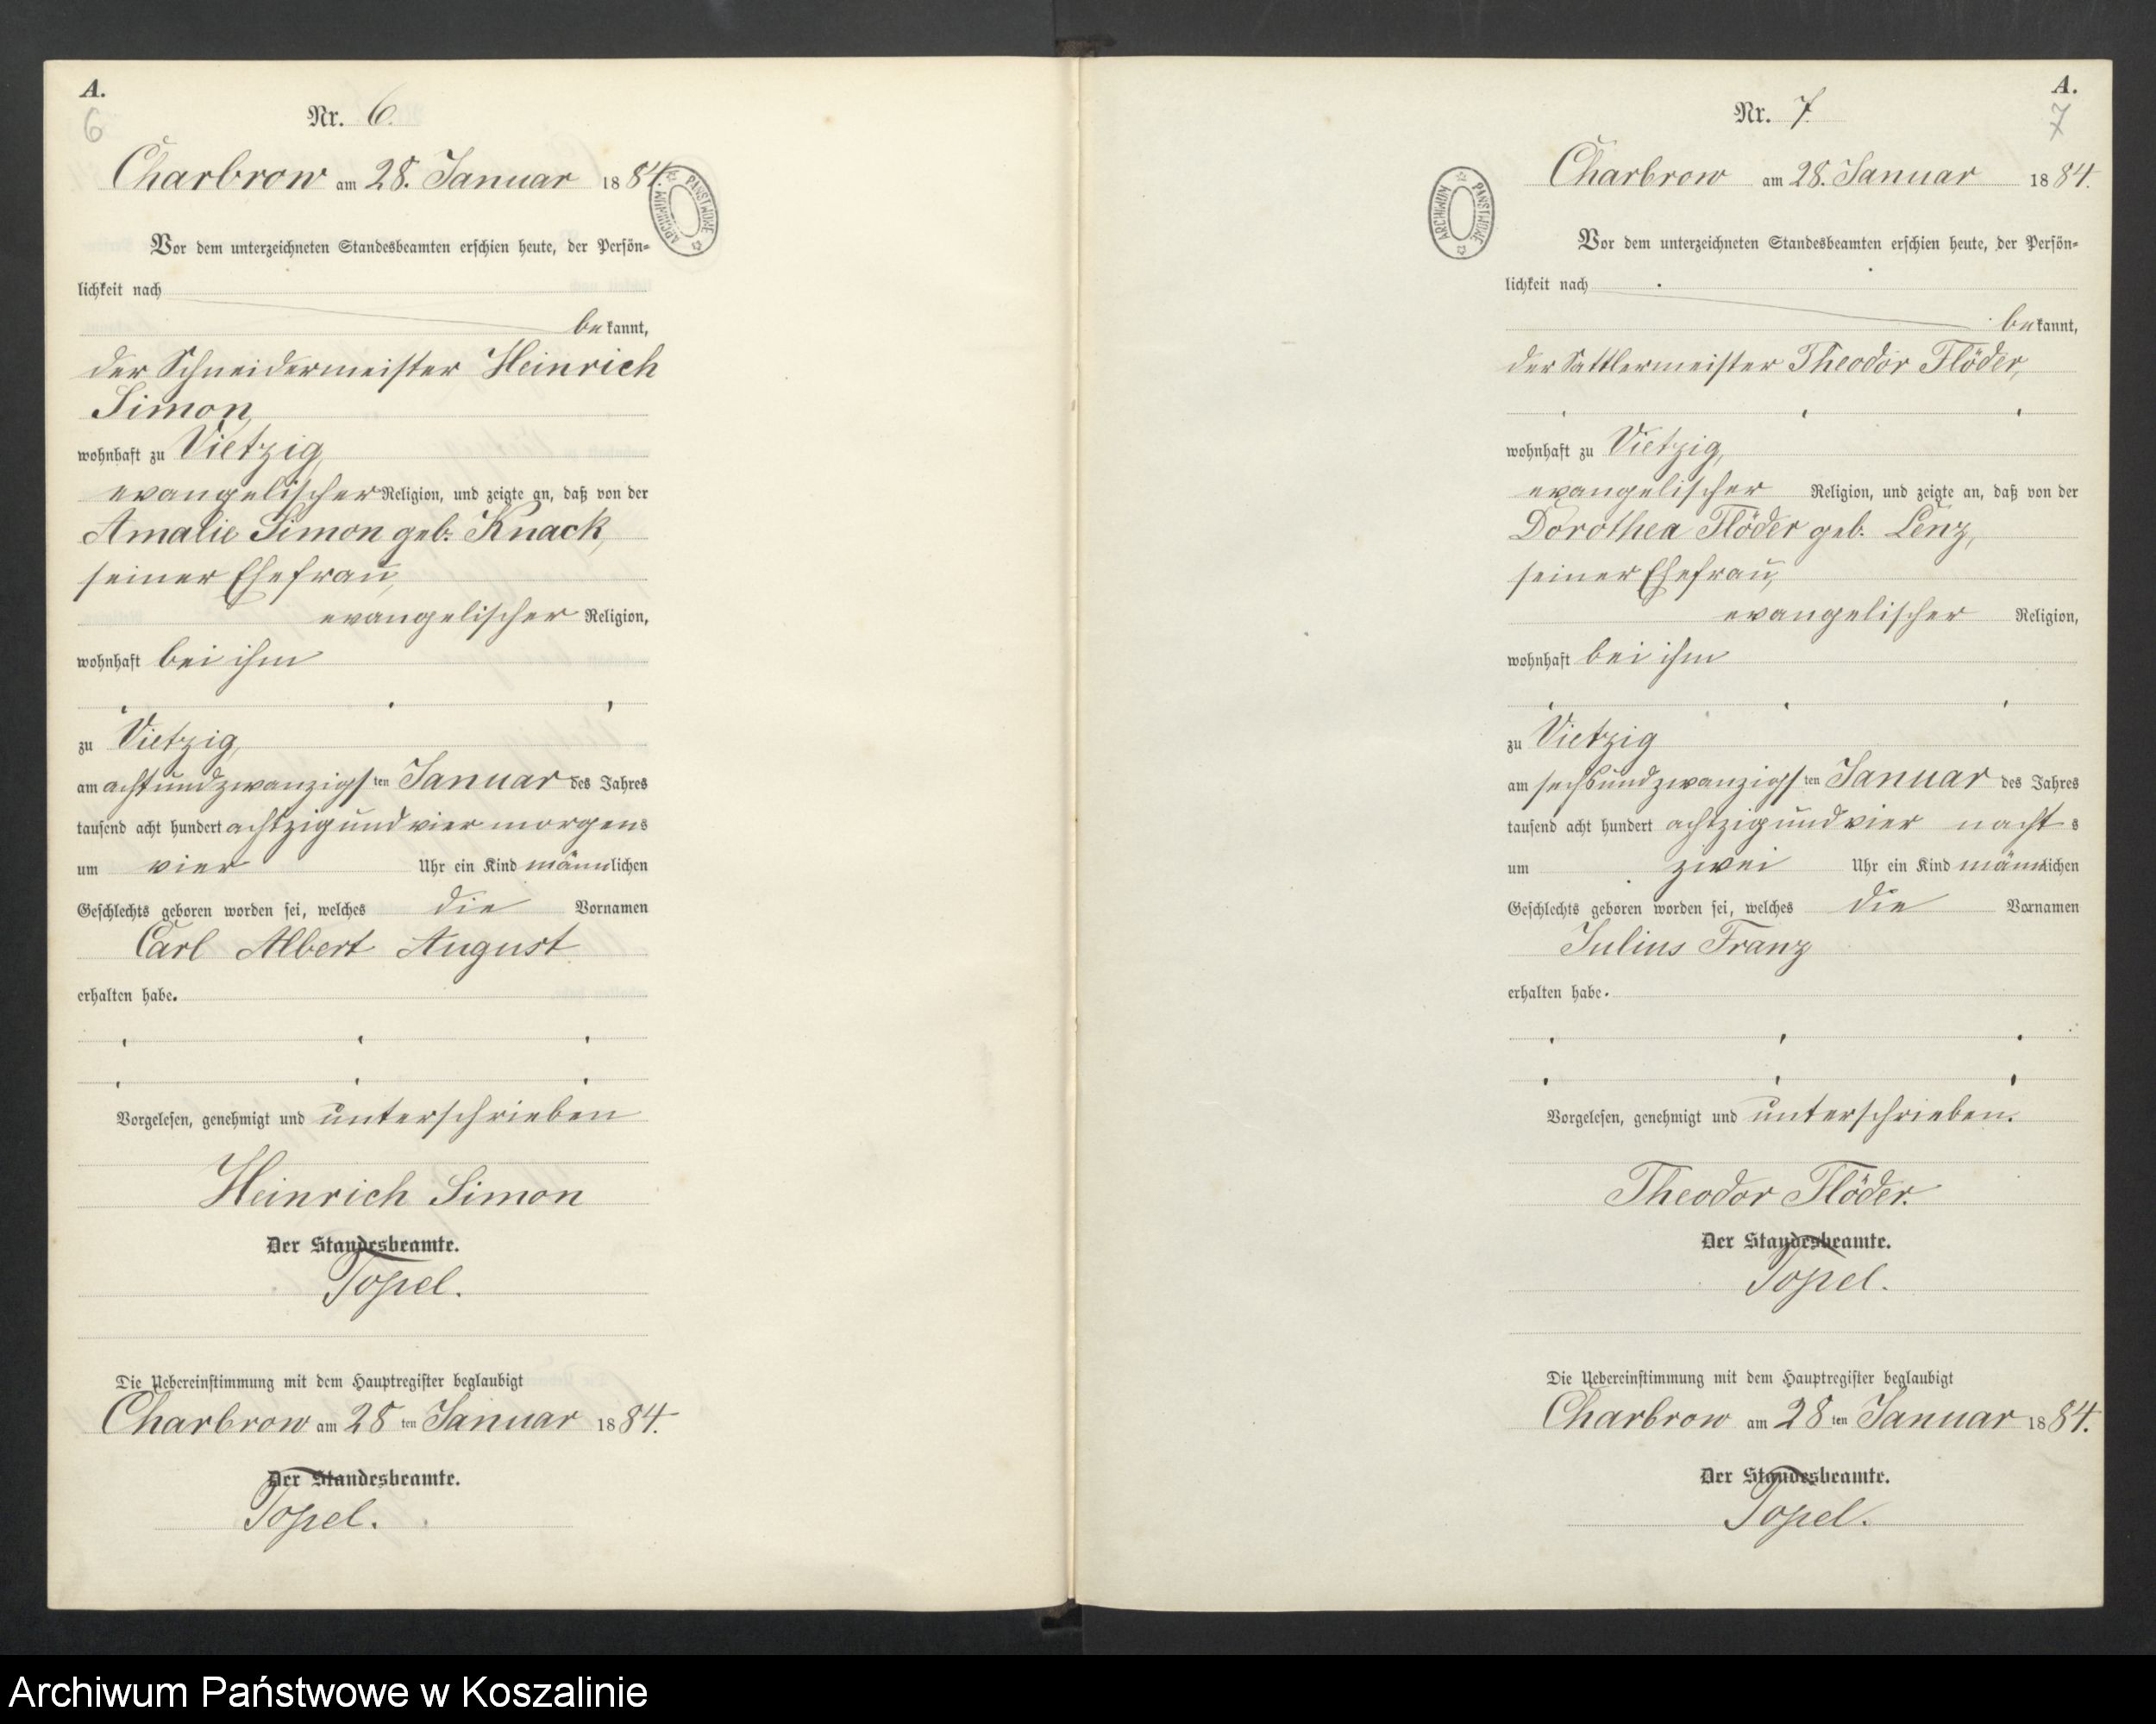 A.
6
Nr. 6.
Charbrow am 28. Januar 1884
ARCHIWUM PAŃSTWOWE
Vor dem unterzeichneten Standesbeamten erschien heute, der Persön-
lichkeit nach
bekannt,
der Schneidermeister Heinrich
Simon,
wohnhaft zu Vietzig,
evangelischer Religion, und zeigte an, daß von der
Amalie Simon geb. Knack,
seiner Ehefrau,
evangelischer Religion,
wohnhaft bei ihm
zu Vietzig,
am achtundzwanzigsten Januar des Jahres
tausend acht hundert achtzig und vier morgens
um vier Uhr ein Kind männlichen
Geschlechts geboren worden sei, welches die Vornamen
Carl Albert August
erhalten habe.
Vorgelesen, genehmigt und unterschrieben
Heinrich Simon
Der Standesbeamte.
Topel.
Die Uebereinstimmung mit dem Hauptregister beglaubigt
Charbrow am 28ten Januar 1884.
Der Standesbeamte.
Topel.
A.
7
Nr. 7.
Charbrow am 28. Januar 1884.
ARCHIWUM PAŃSTWOWE
Vor dem unterzeichneten Standesbeamten erschien heute, der Persön-
lichkeit nach
bekannt,
der Sattlermeister Theodor Flöder,
wohnhaft zu Vietzig,
evangelischer Religion, und zeigte an, daß von der
Dorothea Flöder geb. Lenz,
seiner Ehefrau,
evangelischer Religion,
wohnhaft bei ihm
zu Vietzig
am sechsundzwanzigsten Januar des Jahres
tausend acht hundert achtzig und vier nachts
um zwei Uhr ein Kind männlichen
Geschlechts geboren worden sei, welches die Vornamen
Julius Franz
erhalten habe.
Vorgelesen, genehmigt und unterschrieben.
Theodor Flöder.
Der Standesbeamte.
Topel.
Die Uebereinstimmung mit dem Hauptregister beglaubigt
Charbrow am 28ten Januar 1884.
Der Standesbeamte.
Topel.
Archiwum Państwowe w Koszalinie